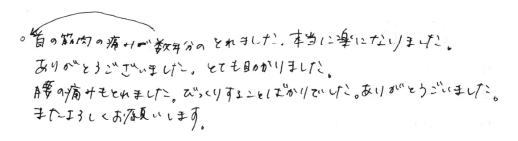 。首の筋肉の痛みが数年分のとれました。本当に楽になりました。
ありがとうございました。とても助かりました。
腰の痛みもとれました。びっくりすることばかりでした。ありがとうございました。
またよろしくお願いします。